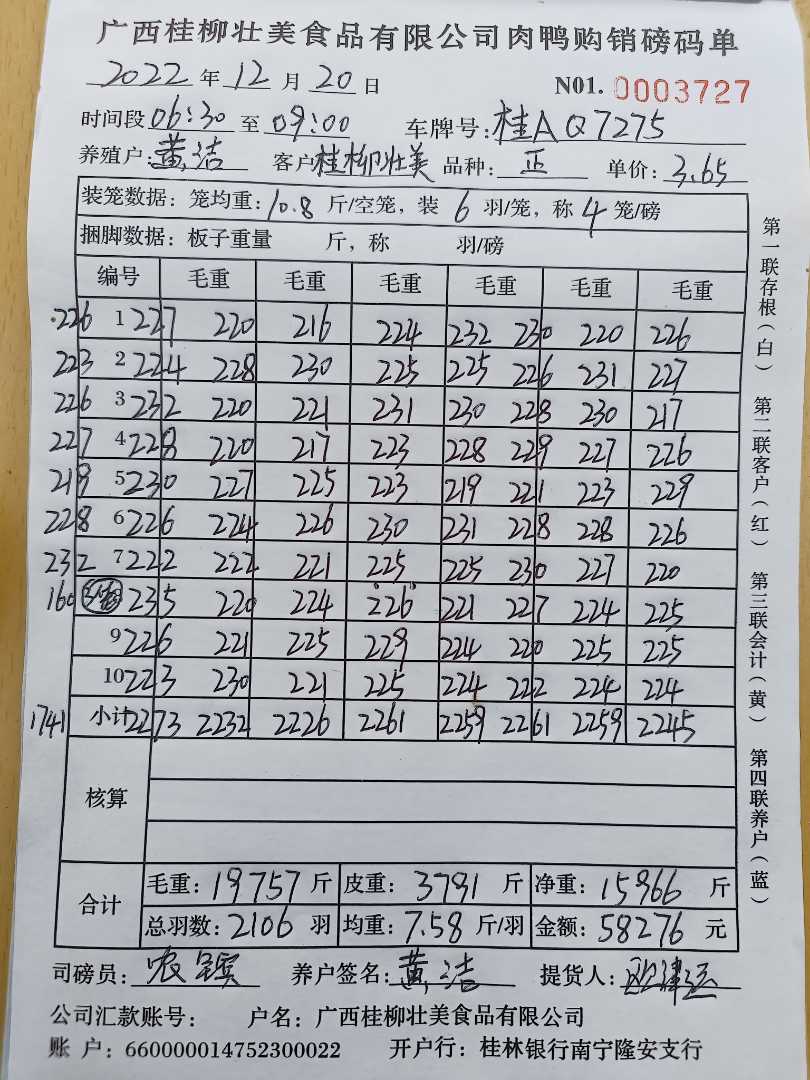 广西桂柳壮美食品有限公司肉鸭购销磅码单
2022 年 12 月 20 日 N01. 0003727
时间段 06:30 至 09:00 车牌号: 桂AQ7275
养殖户: 黄洁 客户 桂柳壮美 品种: 正 单价: 3.65
装笼数据: 笼均重: 10.8 斤/空笼, 装 6 羽/笼, 称 4 笼/磅
捆脚数据: 板子重量 斤, 称 羽/磅
编号 毛重 毛重 毛重 毛重 毛重 毛重
226 1 227 220 216 224 232 230 220 226
223 2 224 228 230 225 225 226 231 227
226 3 232 220 221 231 230 228 230 217
227 4 228 220 217 223 228 229 227 226
219 5 230 227 225 223 219 221 223 229
228 6 226 224 226 230 231 228 228 226
232 7 222 222 221 225 225 230 227 220
160 235 220 224 226 221 227 224 225
9 226 221 225 229 224 220 225 225
10 223 230 221 225 224 222 224 224
1741 小计 2273 2232 2226 2261 2259 2261 2259 2245
核算
合计 毛重: 19757 斤 皮重: 3791 斤 净重: 15966 斤
总羽数: 2106 羽 均重: 7.58 斤/羽 金额: 58276 元
司磅员: 农 养户签名: 黄洁 提货人:
公司汇款账号: 户名: 广西桂柳壮美食品有限公司
账 户: 660000014752300022 开户行: 桂林银行南宁隆安支行
第一联存根(白) 第二联客户(红) 第三联会计(黄) 第四联养户(蓝)